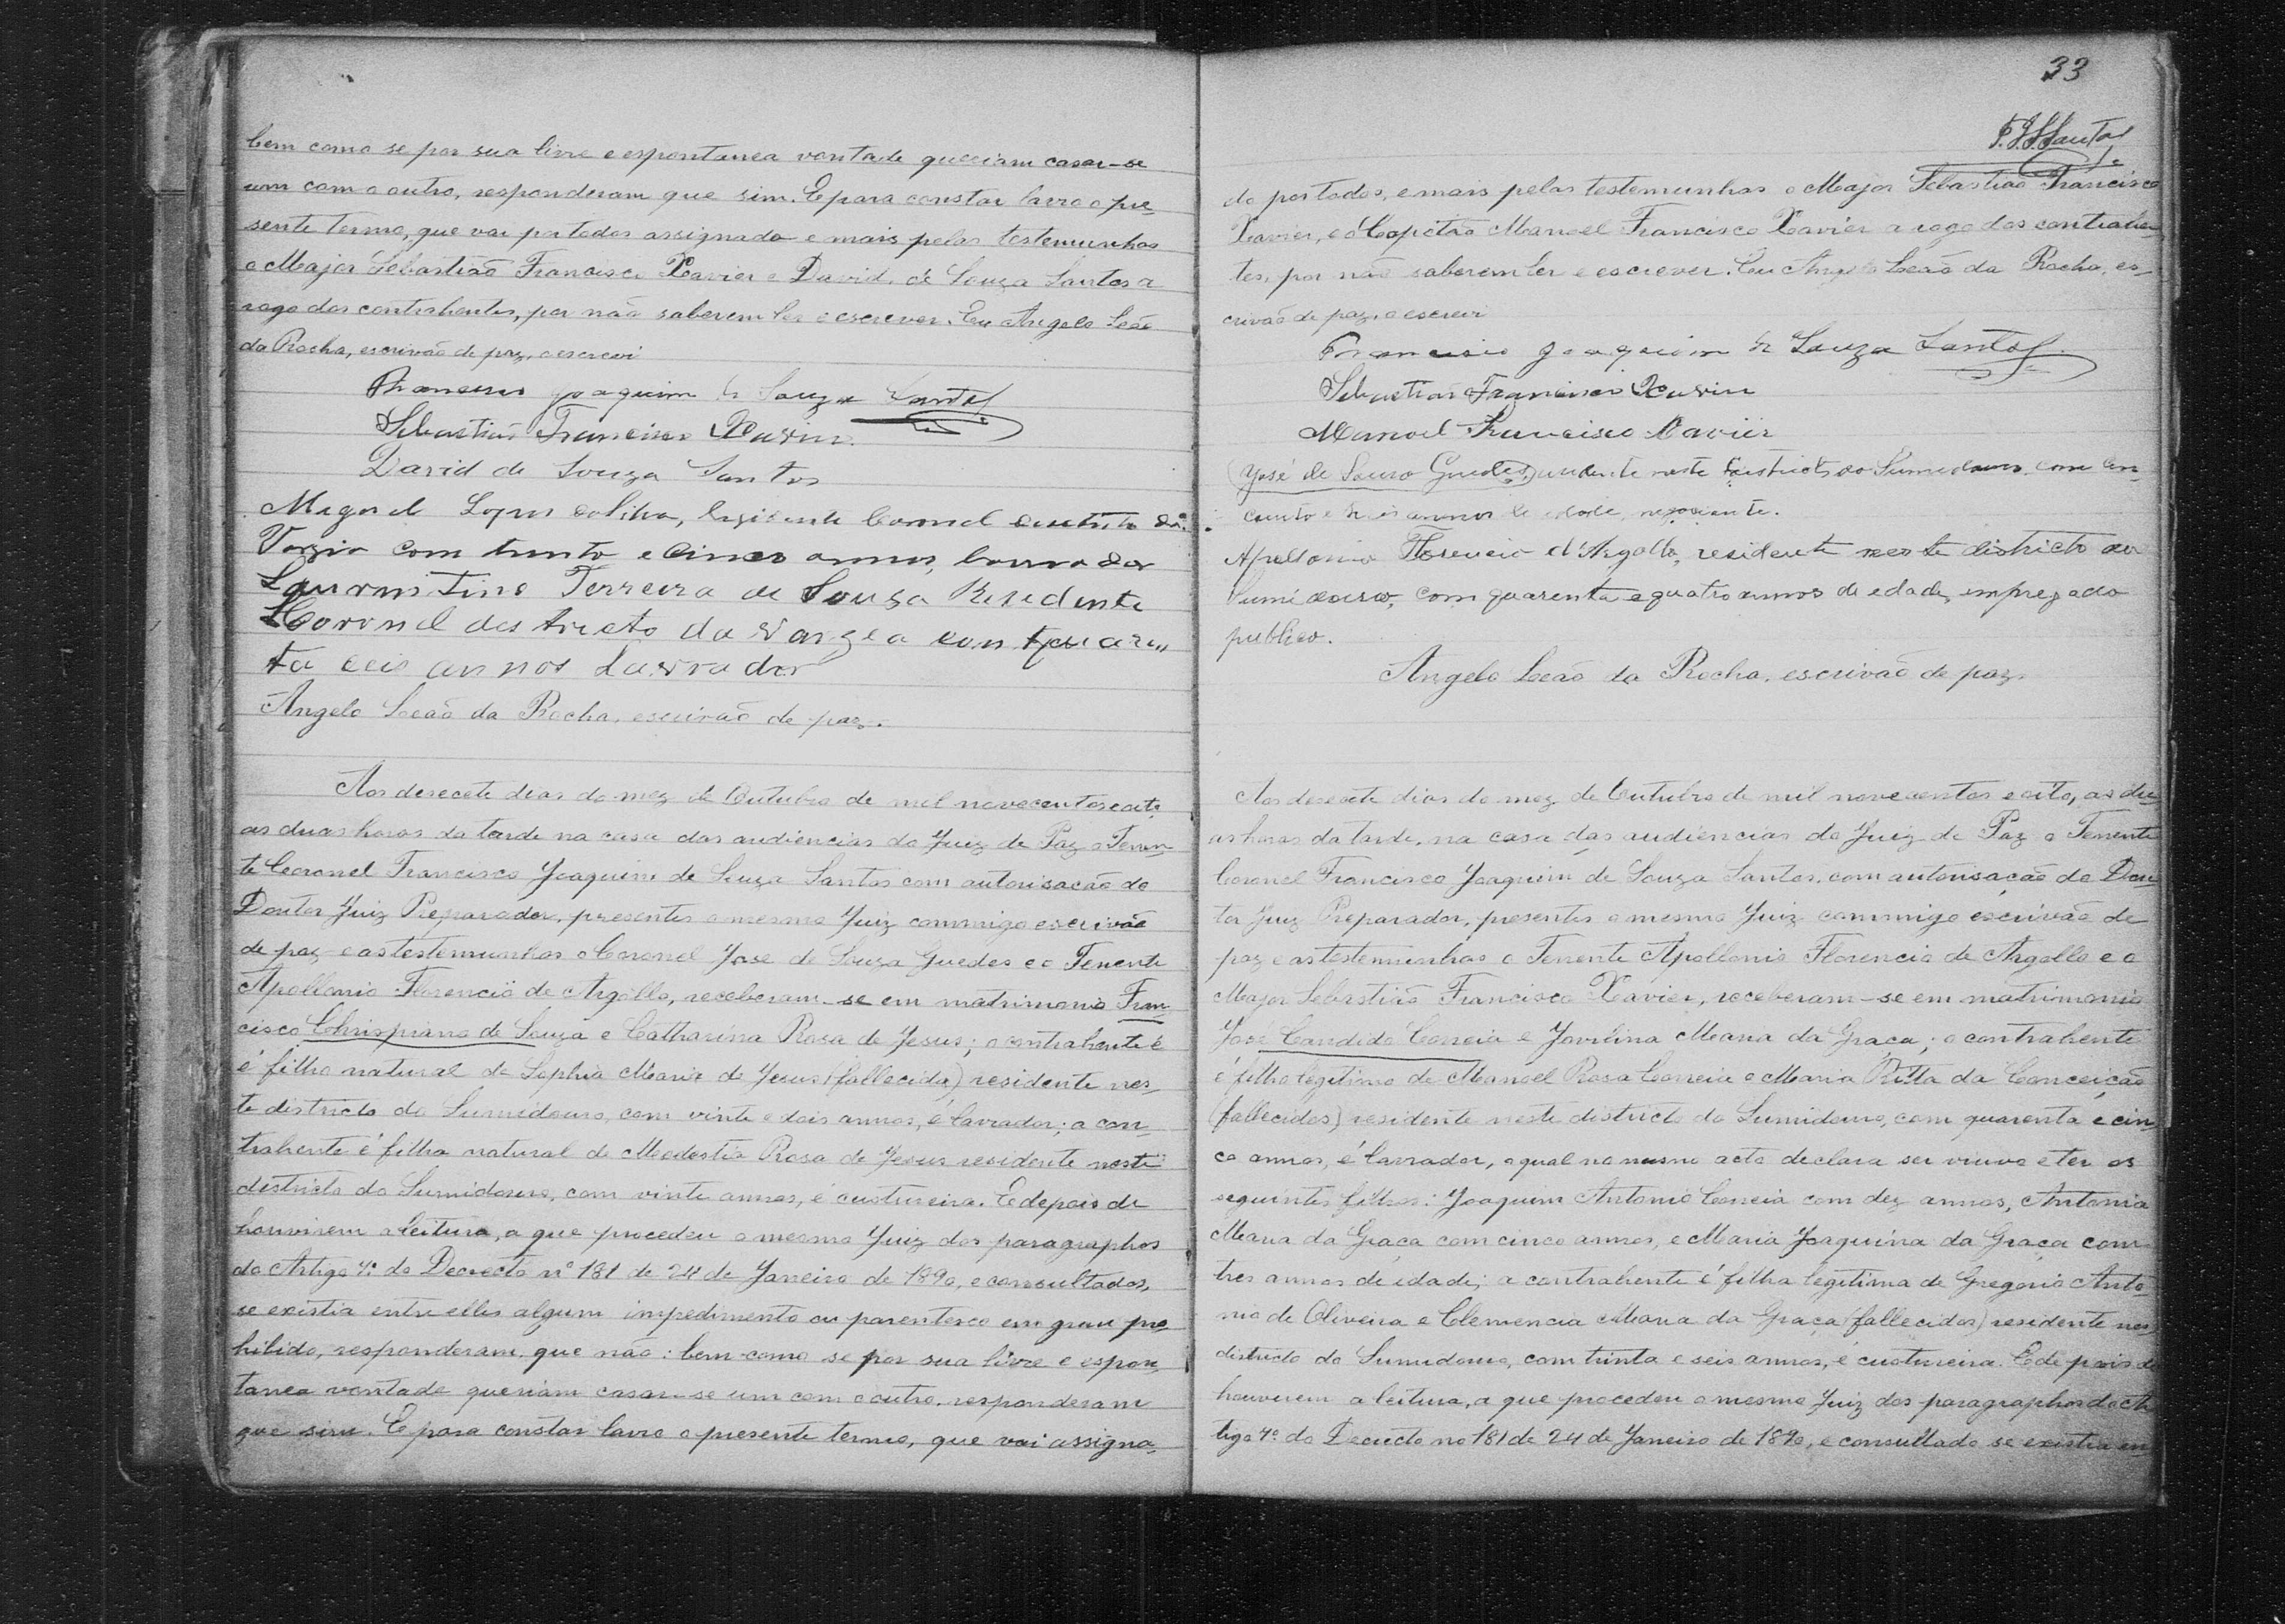 bem como se por sua livre e espontanea vontade queriam casar-se
um com o outro, responderam que sim. E para constar lavro o pre-
sente termo, que vai por todos assignado e mais pelas testemunhas
o Major Sebastião Francisco Xavier e David de Souza Santos a
rogo dos contrahentes, por não saberem ler e escrever. Eu Angelo Leão
da Rocha, escrivão de paz, o escrevi
Francisco Joaquim de Souza Santos
Sebastião Francisco Xavier
David de Souza Santos
Lopes da Silva,
Varzia com trinta e cinco annos, lavrador
Ferreira de Souza Residente
destricto da Varzea com quaren
ta ceis annos Lavrador
Angelo Leão da Rocha, escrivão de paz.
Aos desecete dias do mez de Outubro de mil novecentos e oito,
as duas horas da tarde na casa das audiencias do Juiz de Paz o Tenen-
te Coronel Francisco Joaquim de Souza Santos com autorisacão do
Doutor Juiz Preparador, presentes o mesmo Juiz commigo escrivão
de paz e as testemunhas o Coronel Jose de Souza Guedes e o Tenente
Apollonio Florencio de Argollo, receberam-se em matrimonio Fran-
cisco Chrispiano de Souza e Catharina Rosa de Jesus; o contrahente é
é filho natural de Sophia Maria de Jesus (fallecida) residente nes-
te districto do Sumidouro, com vinte e dois annos, é lavrador; a con-
trahente é filha natural de Modestia Rosa de Jesus residente neste
districto do Sumidouro, com vinte annos, é custureira. E depois de
houvirem a leitura, a que procedeu o mesmo Juiz dos paragraphos
do Artigo 7º do Decrecto nº 181 de 24 de Janeiro de 1890, e consultados,
se existia entre elles algum impedimento ou parentesco em grau pro-
hibido, responderam que não: bem como se por sua livre e espon-
tanea vontade queriam casar-se um com o outro, responderam
que sim. E para constar lavro o presente termo, que vai assigna-
33
F.J.S.Santos
do por todos, e mais pelas testemunhas o Major Sebastião Francisco
Xavier, e o Capitão Manoel Francisco Xavier a rogo dos contrahen-
tes, por não saberem ler e escrever. Eu Angelo Leão da Rocha, es-
crivão de paz, o escrevi
Francisco Joaquim de Souza Santos
Sebastião Francisco Xavier
Manoel Francisco Xavier
José de Souza Guedes, residente neste districto do Sumidouro, com cin-
coenta e tres annos de edade, negociante.
Apollonio Florencio d'Argollo, residente neste districto do
Sumidouro, com quarenta e quatro annos de edade, empregado
publico.
Angelo Leão da Rocha, escrivão de paz.
Aos desecete dias do mez de Outubro de mil novecentos e oito, as du-
as horas da tarde, na casa das audiencias do Juiz de Paz o Tenente
Coronel Francisco Joaquim de Souza Santos, com autorisação do Dou-
tor Juiz Preparador, presentes o mesmo Juiz commigo escrivão de
paz e as testemunhas o Tenente Apollonio Florencio de Argollo e o
Major Sebastião Francisco Xavier, receberam-se em matrimonio
José Candido Correia e Jovilina Maria da Graça; o contrahente
é filho legitimo de Manoel Rosa Correia e Maria Ritta da Conceição
(fallecidos) residente neste districto do Sumidouro, com quarenta e cin-
co annos, é lavrador, o qual no mesmo acto declara ser viuvo e ter os
seguintes filhos: Joaquim Antonio Correia com dez annos, Antonia
Maria da Graça com cinco annos, e Maria Joaquina da Graça com
tres annos de idade; a contrahente é filha legitima de Gregorio Anto-
nio de Oliveira e Clemencia Maria da Graça (fallecidos) residente nes
districto do Sumidouro, com trinta e seis annos, é custureira. E de pois de
houverem a leitura, a que procedeu o mesmo Juiz dos paragraphos do Ar
tigo 7º do Decrecto no 181 de 24 de Janeiro de 1890, e consultado se existia en